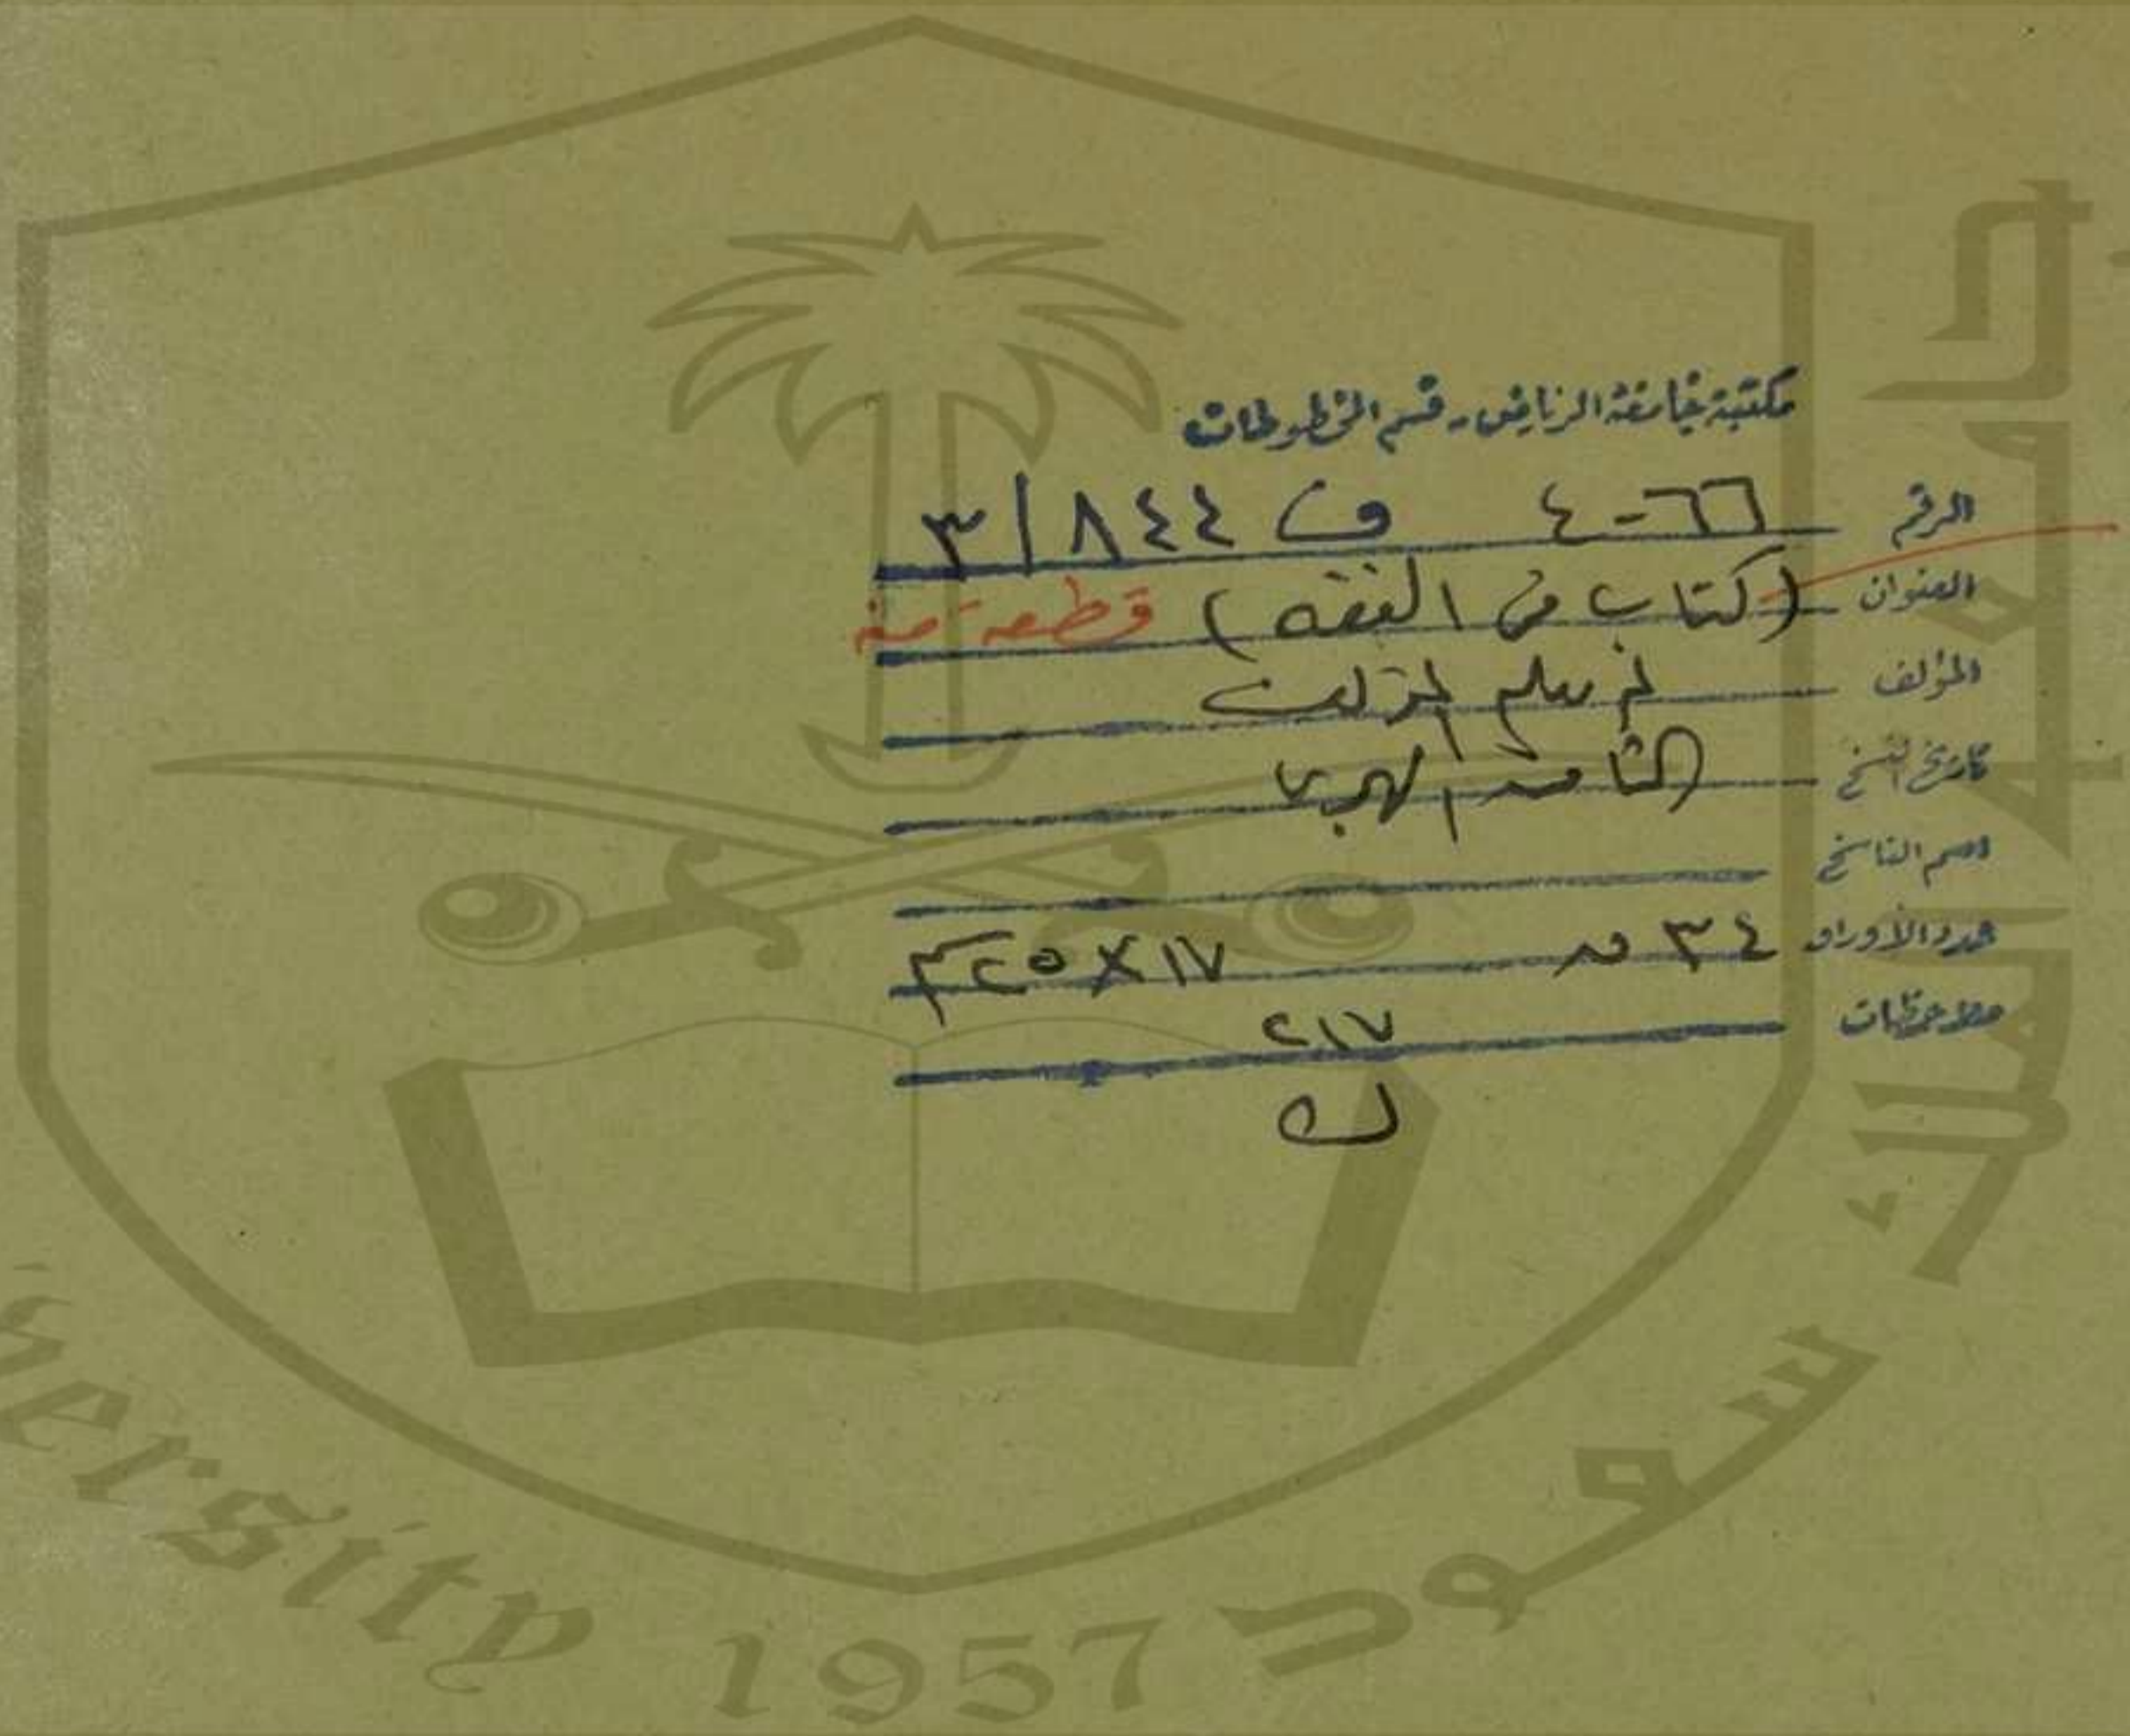 مكتبة جامعة الرياض - قسم المخطوطات
الرقم ٤-٦٦ ف ٨٤٤ / ٣
العنوان (كتاب في الفقه) قطعة منه
المؤلف لم يعلم المؤلف
تاريخ النسخ الثامن الهجري
اسم الناسخ
عدد الأوراق ٣٤ ق ١٧ × ٢٥ سم
ملاحظات ٢١٧
ك
سعود
ersity 1957